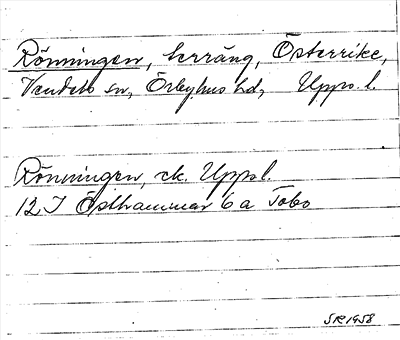 Rönningen, terräng, Österrike,
Vendels sn, Örbyhus hd, Upps. l.
Rönningen, ek. Uppsl.
12I Östhammar 6a Tobo
SR 1958